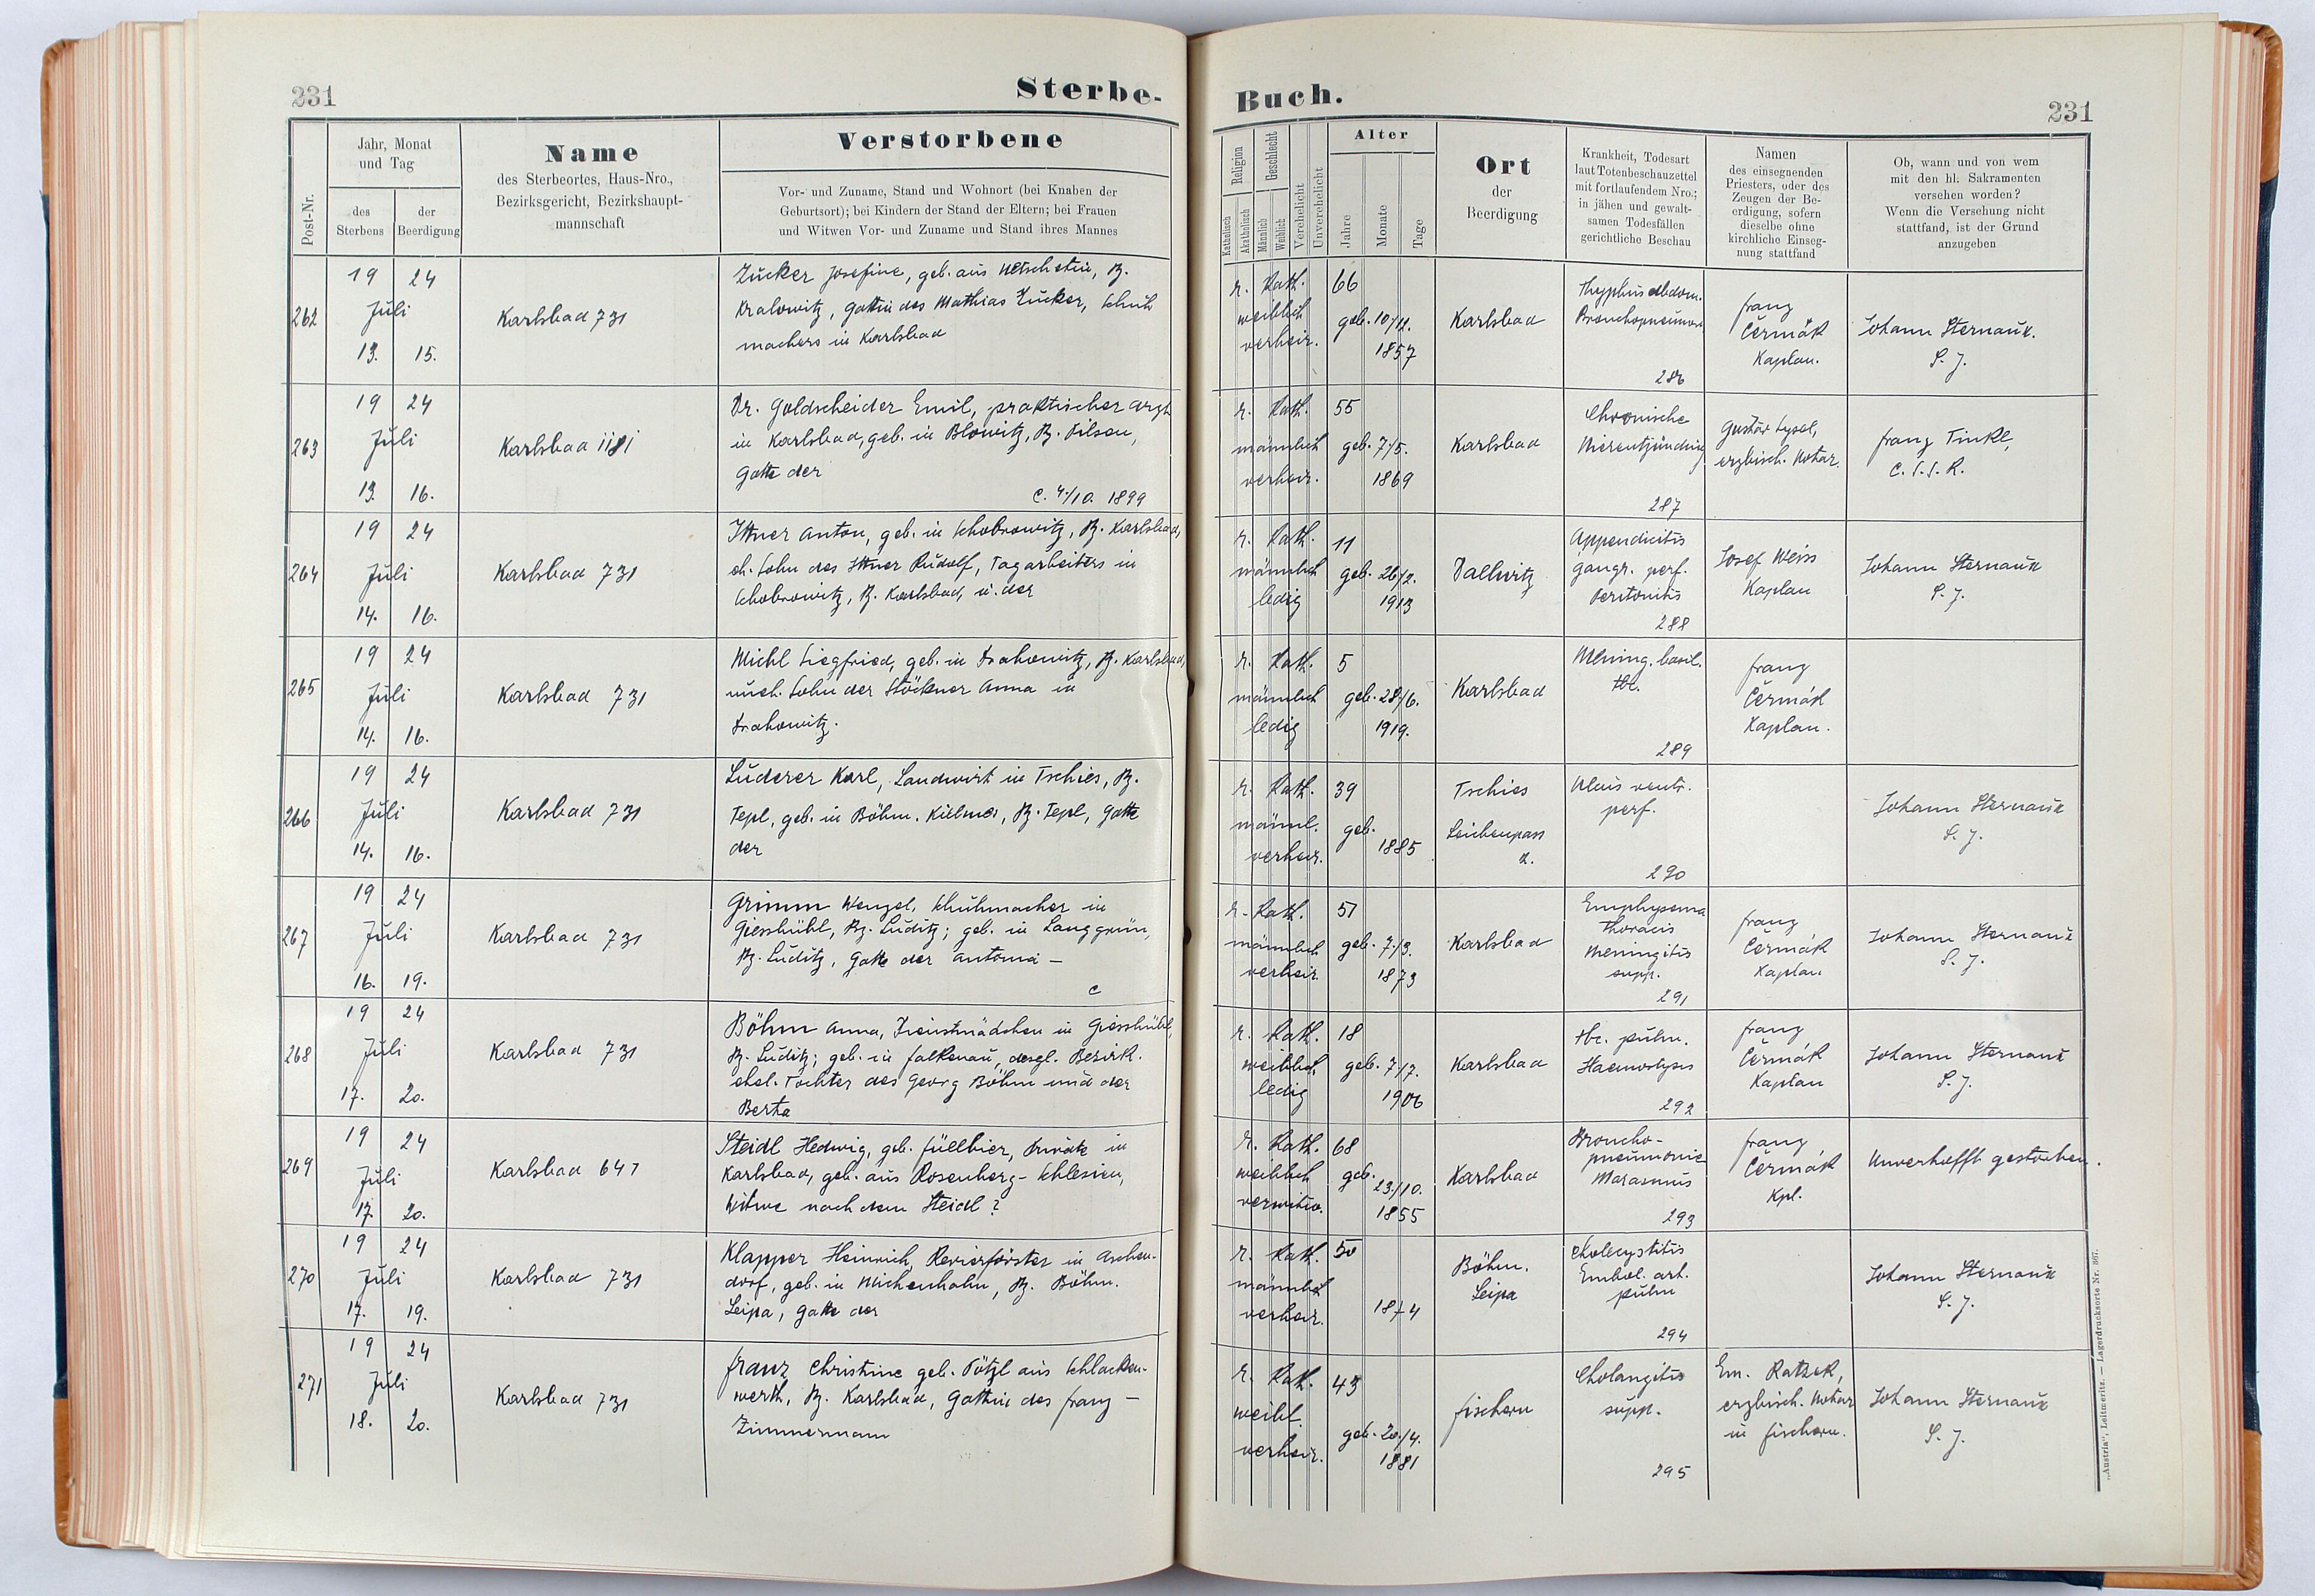 231
Sterbe-
Post-Nr.
Jahr, Monat
und Tag
des
Sterbens
der
Beerdigung
Name
des Sterbeortes, Haus-Nro.,
Bezirksgericht, Bezirkshaupt-
mannschaft
Verstorbene
Vor- und Zuname, Stand und Wohnort (bei Knaben der
Geburtsort); bei Kindern der Stand der Eltern; bei Frauen
und Witwen Vor- und Zuname und Stand ihres Mannes
262
19 24
Juli
13. 15.
Karlsbad 731
Zucker Josefine, geb. aus Netschetin, Bz.
Kralowitz, Gattin des Mathias Zucker, Schuh
machers in Karlsbad
263
19 24
Juli
13. 16.
Karlsbad 1181
Dr. Goldscheider Emil, praktischer Arzt
in Karlsbad, geb. in Blowitz, Bz. Pilsen,
Gatte der
C. 4./10. 1899
264
19 24
Juli
14. 16.
Karlsbad 731
Ittner Anton, geb. in Schobrowitz, Bz. Karlsbad,
eh. Sohn des Ittner Rudolf, Tagarbeiters in
Schobrowitz, Bz. Karlsbad, u. der
265
19 24
Juli
14. 16.
Karlsbad 731
Michl Siegfried, geb. in Drahowitz, Bz. Karlsbad,
uneh. Sohn der Stöckner Anna in
Drahowitz.
266
19 24
Juli
14. 16.
Karlsbad 731
Luderer Karl, Landwirt in Tschies, Bz.
Tepl, geb. in Böhm. Killmes, Bz. Tepl, Gatte
der
267
19 24
Juli
16. 19.
Karlsbad 731
Grimm Wenzel, Schuhmacher in
Giesshübl, Bz. Luditz; geb. in Langgrün,
Bz. Luditz, Gatte der Antonia —
C
268
19 24
Juli
17. 20.
Karlsbad 731
Böhm Anna, Dienstmädchen in Giesshübl,
Bz. Luditz; geb. in Falkenau, desgl. Bezirk.
ehel. Tochter des Georg Böhm und der
Berta
269
19 24
Juli
17. 20.
Karlsbad 647
Steidl Hedwig, geb. Füllbier, Private in
Karlsbad, geb. aus Rosenberg - Schlesien,
Witwe nach dem Steidl ?
270
19 24
Juli
17. 19.
Karlsbad 731
Klapper Heinrich, Revierförster in Aschen-
dorf, geb. in Michenhahn, Bz. Böhm.
Leipa, Gatte der
271
19 24
Juli
18. 20.
Karlsbad 731
Franz Christine geb. Pötzl aus Schlacken-
werth, Bz. Karlsbad, Gattin des Franz —
Zimmermann
Buch.
231
Religion
Katholisch
Akatholisch
Geschlecht
Männlich
Weiblich
Verehelicht
Unverehelicht
Alter
Jahre
Monate
Tage
Ort
der
Beerdigung
Krankheit, Todesart
laut Totenbeschauzettel
mit fortlaufendem Nro.;
in jähen und gewalt-
samen Todesfällen
gerichtliche Beschau
Namen
des einsegnenden
Priesters, oder des
Zeugen der Be-
erdigung, sofern
dieselbe ohne
kirchliche Einseg-
nung stattfand
Ob, wann und von wem
mit den hl. Sakramenten
versehen worden?
Wenn die Versehung nicht
stattfand, ist der Grund
anzugeben
r. Kath.
weiblich
verheir.
66
geb. 10/11.
1857
Karlsbad
Thyphus abdom.
Bronchopneumon
286
Franz
Čermák
Kaplan.
Johann Sternaux.
S. J.
r. Kath.
männlich
verheir.
55
geb. 7./5.
1869
Karlsbad
Chronische
Nierentzündung
287
Gustav Lysel,
erzbisch. Notar.
Franz Tinkl,
C. S. S. R.
r. Kath.
männlich
ledig
11
geb. 26/2.
1913
Dallwitz
Appendicitis
gangr. perf.
Peritonitis
288
Josef Weiss
Kaplan
Johann Sternaux
S. J.
r. Kath.
männlich
ledig
5
geb. 28/6.
1919.
Karlsbad
Mening. basil.
tbc.
289
Franz
Čermák
Kaplan.
r. Kath.
männl.
verheir.
39
geb.
1885
Tschies
Leichenpass
2.
Ulcus ventr.
perf.
290
Johann Sternaux
S. J.
r. Kath.
männlich
verheir.
51
geb. 7./3.
1873
Karlsbad
Emphysema
thoracis
Meningitis
supp.
291
Franz
Čermák
Kaplan
Johann Sternaux
S. J.
r. Kath.
weiblich
ledig
18
geb. 7/7.
1906
Karlsbad
tbc. pulm.
Haemoptysis
292
Franz
Čermák
Kaplan
Johann Sternaux
S. J.
r. Kath.
weiblich
verwitw.
68
geb.
23./10.
1855
Karlsbad
Broncho-
pneumonie
Marasmus
293
Franz
Čermák
Kpl.
Unverhofft gestorben.
r. Kath.
männlich
verheir.
50
1874
Böhm.
Leipa
Cholecystitis
Embol. art.
pulm
294
Johann Sternaux
S. J.
r. Kath.
weibl.
verheir.
43
geb. 20./4.
1881
Fischern
Cholangitis
supp.
295
Em. Ratzek,
erzbisch. Notar
in Fischern.
Johann Sternaux
S. J.
„Austria", Leitmeritz. — Lagerdrucksorte Nr. 867.